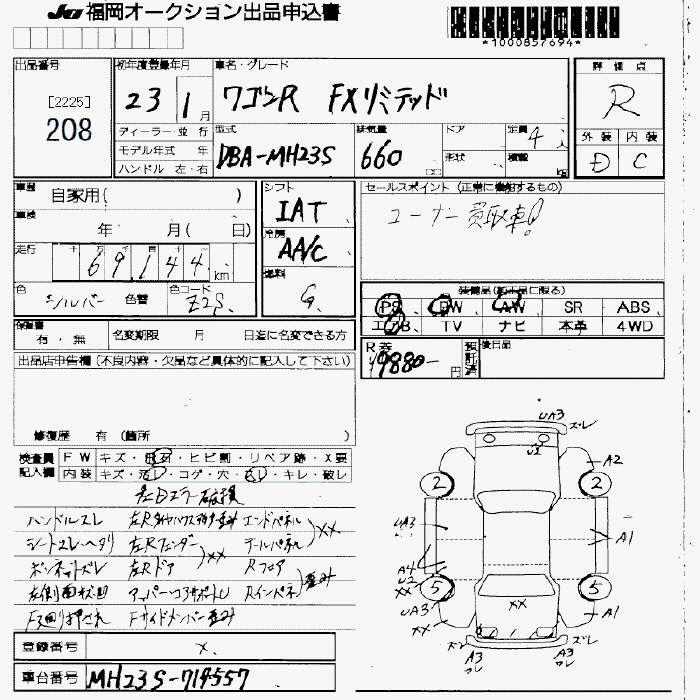 JU 福岡オークション出品申込書
*1000857694*
出品番号
[2225]
208
初年度登録年月
23 1月
ディーラー・並行
モデル年式 年
ハンドル 左・右
車名・グレード
ワゴンR FXリミテッド
型式
DBA-MH23S
排気量
660 cc
ドア
形状
定員
4 人
積載
kg
評価点
R
外装 内装
D C
車歴
自家用( )
車検
年 月( 日)
走行
十 万 千 百 十
69,144 km
色
シルバー 色替
色コード
Z2S
シフト
IAT
冷房
AA/C
燃料
G
セールスポイント (正常に機能するもの)
コーナー買取車!
装備品(純正品に限る)
PS PW A/W SR ABS
エアB TV ナビ 本革 4WD
保証書
有・無 名変期限 月 日迄に名変できる方
R券
¥9880- 円
預託済
後日品
出品店申告欄 (不良内容・欠品など具体的に記入して下さい)
修復歴 有 (箇所 )
検査員 FW キズ・飛石・ヒビ割・リペア跡・X要
記入欄 内装 キズ・汚レ・コゲ・穴・スレ・キレ・破レ
左Dミラー破損
ハンドルスレ 左Rタイヤハウス 歪み エンドパネル
シートスレ・ヘタリ 左Rフェンダー テールパネル XX
ボンネットズレ 左Rドア XX Rフロア
左側面凹 アッパーコアサポートU Rインパネ 歪み
F廻り押され Fサイドメンバー歪み
登録番号 X
車台番号 MH23S-719557
UA3 ズレ
U2
A2
2 2
UA3
A1
A4
U2
XX
5 5
UA3
XX
XX
A1
X2
A3
ズレ
A3
ズレ